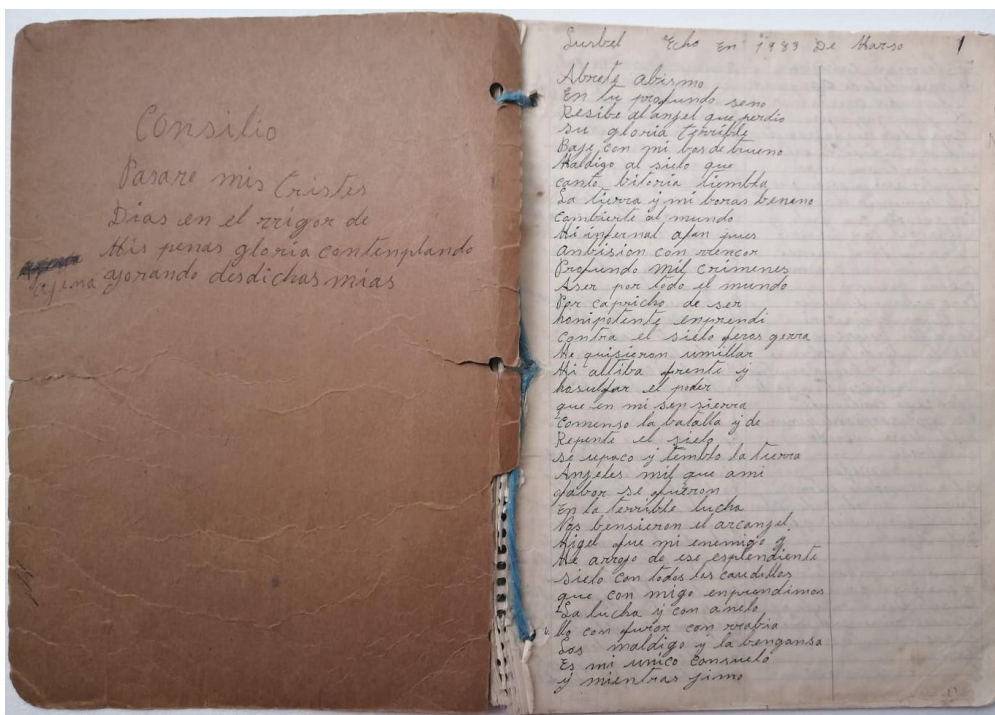 Consilio
Pasare mis tristes
Dias en el rrigor de
Mis penas gloria contemplando
Ajena yorando desdichas mias
Lusbel Echo En 1983 De Marso 1
Abrete abismo
En tu profundo seno
Resibe al angel que perdio
Su gloria terrible
Baje con mi bos de trueno
Maldigo al sielo que
canto bitoria tiembla
La tierra y mi boras beneno
combierte al mundo
Mi infernal afan pues
Ambision con rrencor
Profundo mil crimenes
Aser por todo el mundo
Por capricho de ser
honipotente enprendi
contra el sielo feros gerra
Me quisieron umillar
Mi altiba frente y
el poder
que en mi ser sierra
Comenso la batalla y de
Repente el sielo
se upaco y temblo la tierra
Angeles mil que ami
fabor se fueron
En la terrible lucha
Nos bensieron el arcangel
Migel fue mi enemigo y
Me arrojo de ese esplendiente
sielo con todos los caudillos
que con migo enprendimos
La lucha y con anelo
Yo con furor con rrabia
Los maldigo y la bengansa
Es mi unico consuelo
y mientras jimo